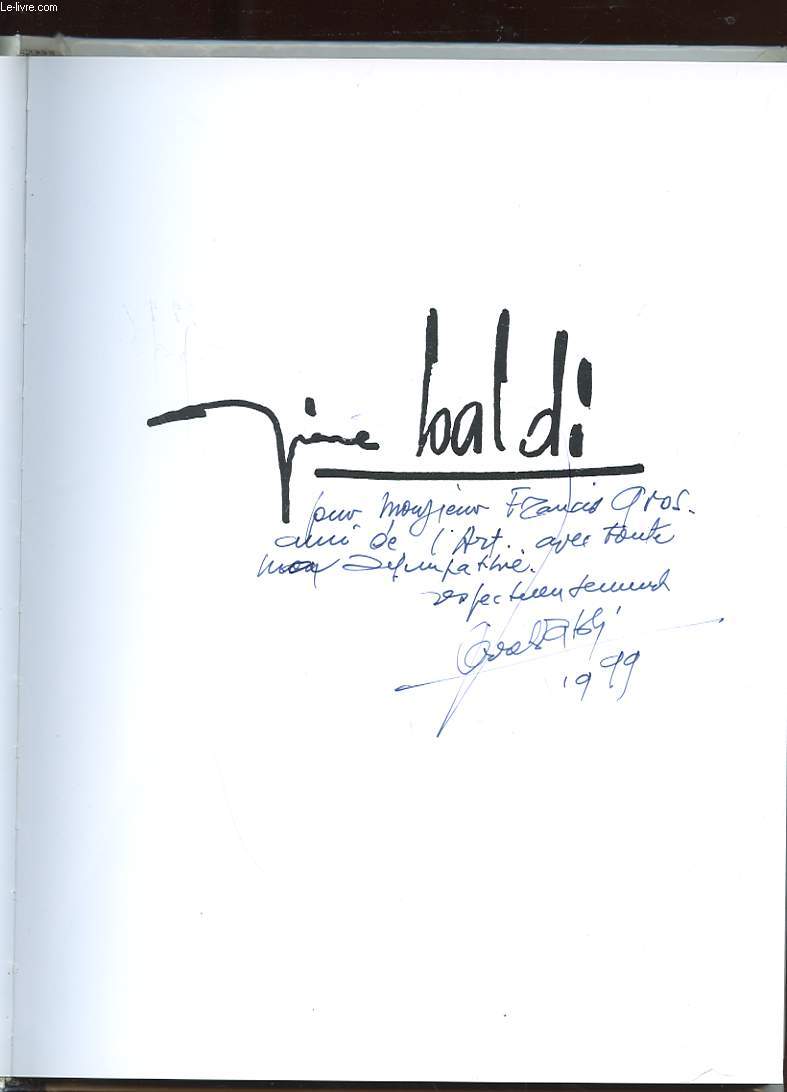 Le-livre.com
baldi
pour Monsieur Francis Gros.
ami de l'Art.. avec toute
mon sympathie.
respectueusement
1999